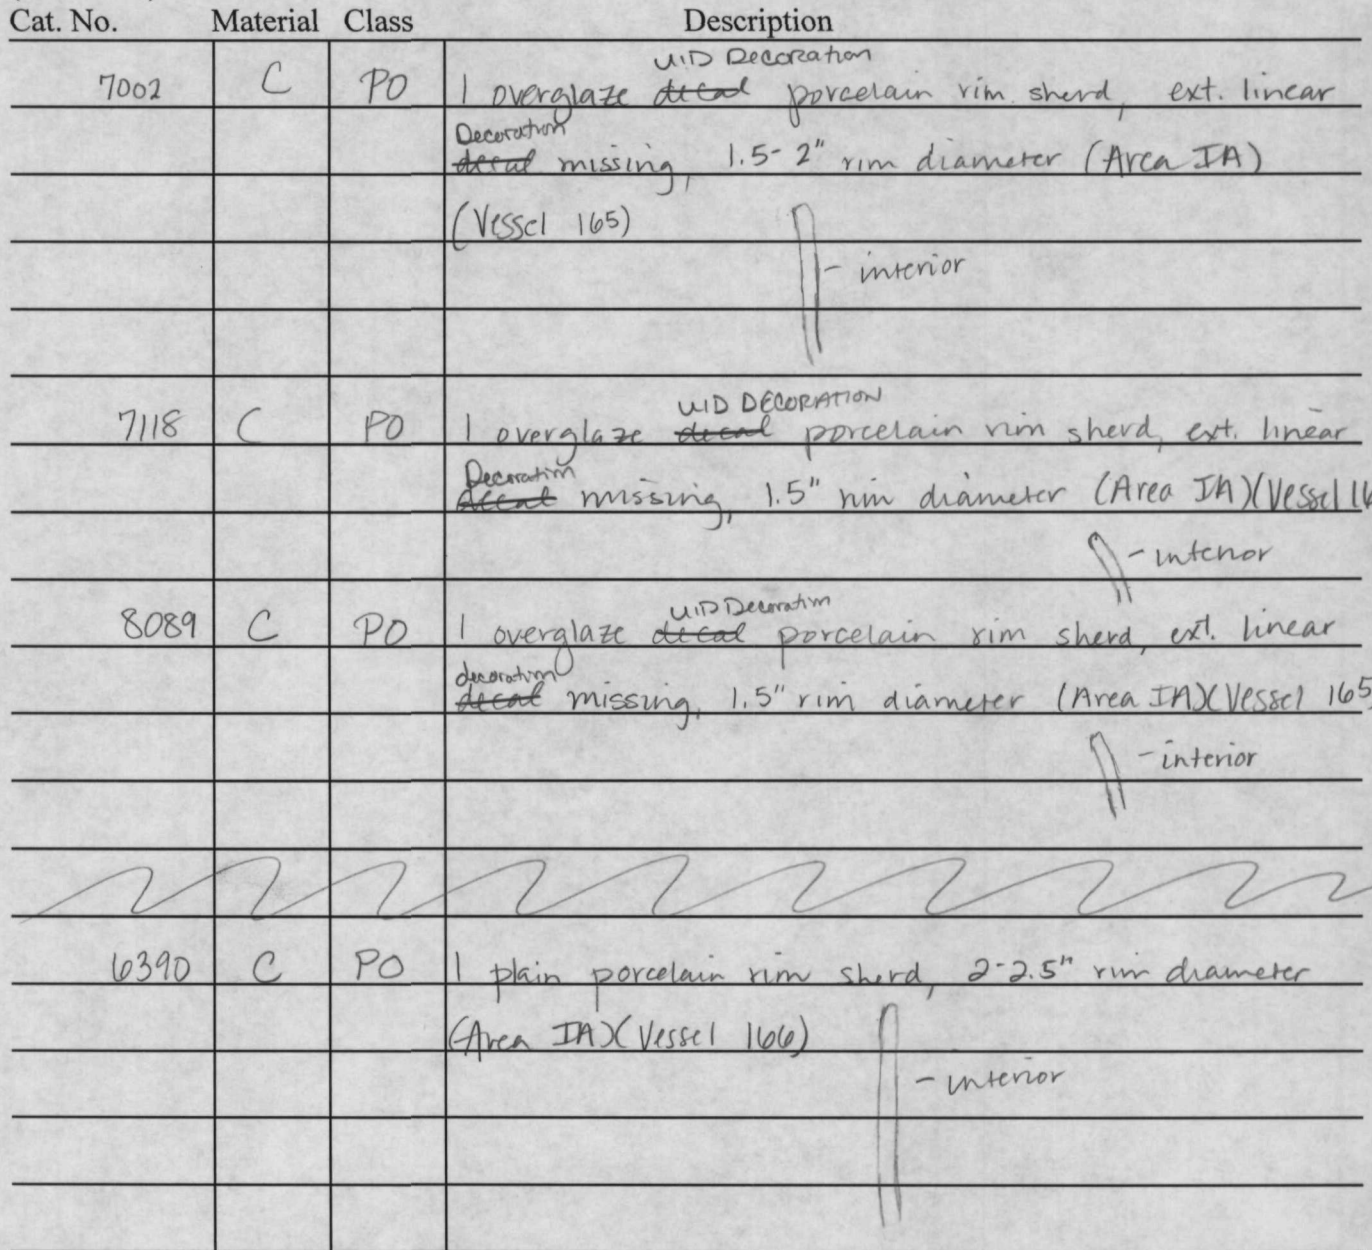 Cat. No. Material Class Description
UID Decoration
7002 C PO 1 overglaze decal porcelain rim sherd, ext. linear
Decoration
decal missing, 1.5-2" rim diameter (Area IA)
(Vessel 165)
- interior
UID DECORATION
7118 C PO 1 overglaze decal porcelain rim sherd, ext. linear
Decoration
decal missing, 1.5" rim diameter (Area IA)(Vessel 16
- interior
UID Decoration
8089 C PO 1 overglaze decal porcelain rim sherd, ext. linear
decoration
decal missing, 1.5" rim diameter (Area IA)(Vessel 165
- interior
6390 C PO 1 plain porcelain rim sherd, 2-2.5" rim diameter
(Area IA)(Vessel 166)
- interior